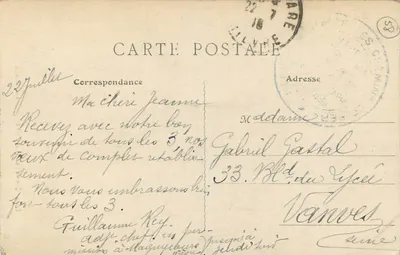 22 - 7
18
GARE
58
CARTE POSTALE
Correspondance
Adresse
22 Juillet
Ma chère Jeanne
Recevez avec notre bon
souvenir de tous les 3 nos
vœux de complet rétablis-
sement.
Nous vous embrassons bien
fort tous les 3.
Guillaume Rey
adjt chef en per-
mission à jusqu'à
Madame
Gabriel Gastal
33. Bld du Lycée
Vanves
Seine